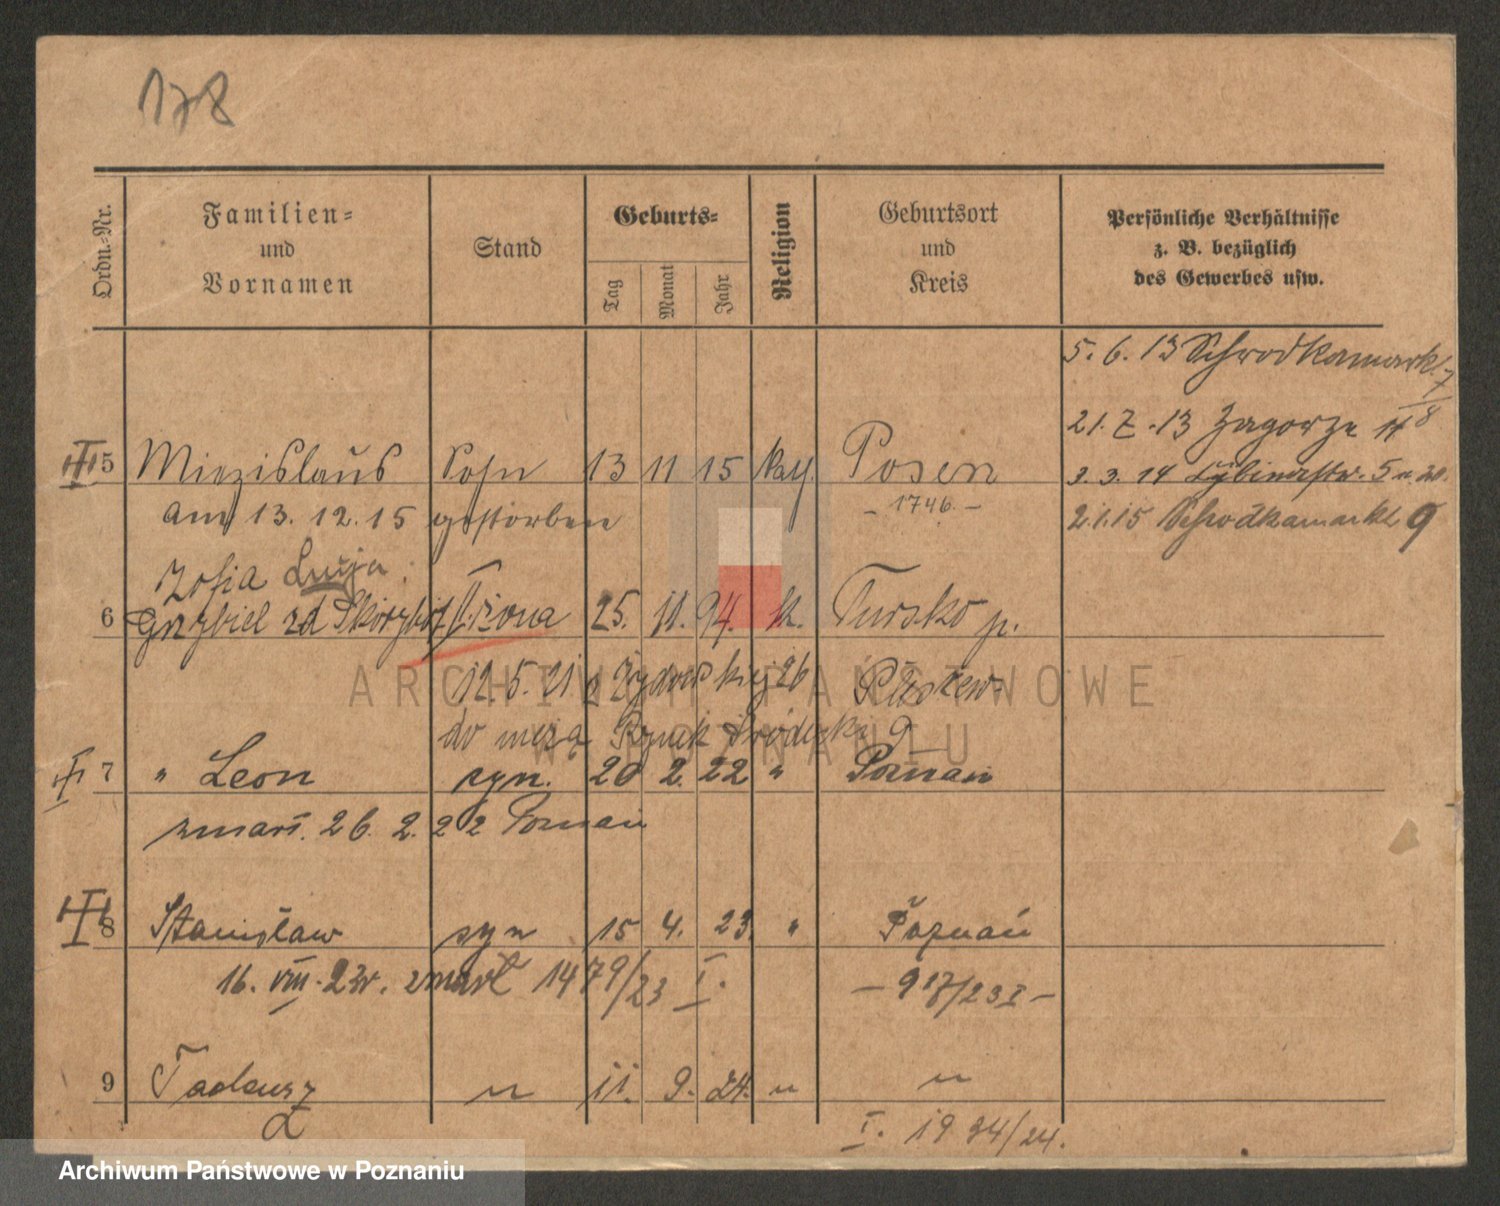 178
Ordn.-Nr.
Familien-
und
Vornamen
Stand
Geburts-
Tag
Monat
Jahr
Religion
Geburtsort
und
Kreis
Persönliche Verhältnisse
z. B. bezüglich
des Gewerbes usw.
5. 6. 13 Schrodkamarkt 7
21. 7. 13 Zagorze
5 Miezislaus Sohn 13 11 15 kath. Posen
3. 3. 14 5
am 13. 12. 15 gestorben
- 1746. -
2.1.15 Schrodkamarkt 9
Zofia Łucja
6 Grzybiel zd II. żona 25. 11. 94. k. Tursko p.
12. 5. 21 z Żydowskiej 26 Pleszew
do męża Rynek Śródecki 9
7 " Leon syn. 20 2. 22 " Poznań
zmarł. 26. 2. 22 Poznań
8 Stanisław syn 15 4. 23. " Poznań
16. VIII. 23r. zmarł 1479/23 I.
- 917/23 I -
9 Tadeusz " 11. 9. 24. " "
I. 1994/24.
ARCHIWUM PAŃSTWOWE
W POZNANIU
Archiwum Państwowe w Poznaniu